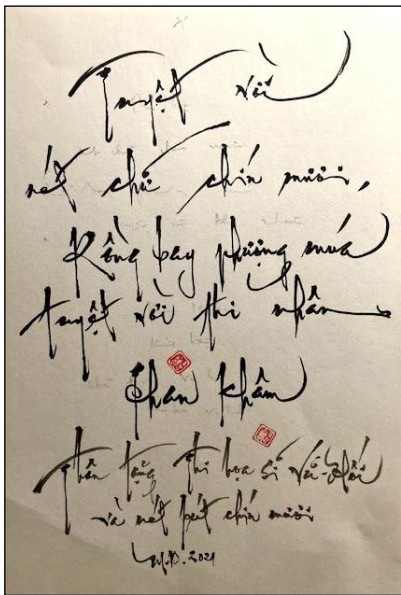 Tuyệt vời
nét chữ chín mười,
Rồng bay phượng múa
tuyệt vời thi nhân
Phan Khâm
Thân tặng Thi họa sĩ
và nét bút chín mười
2021